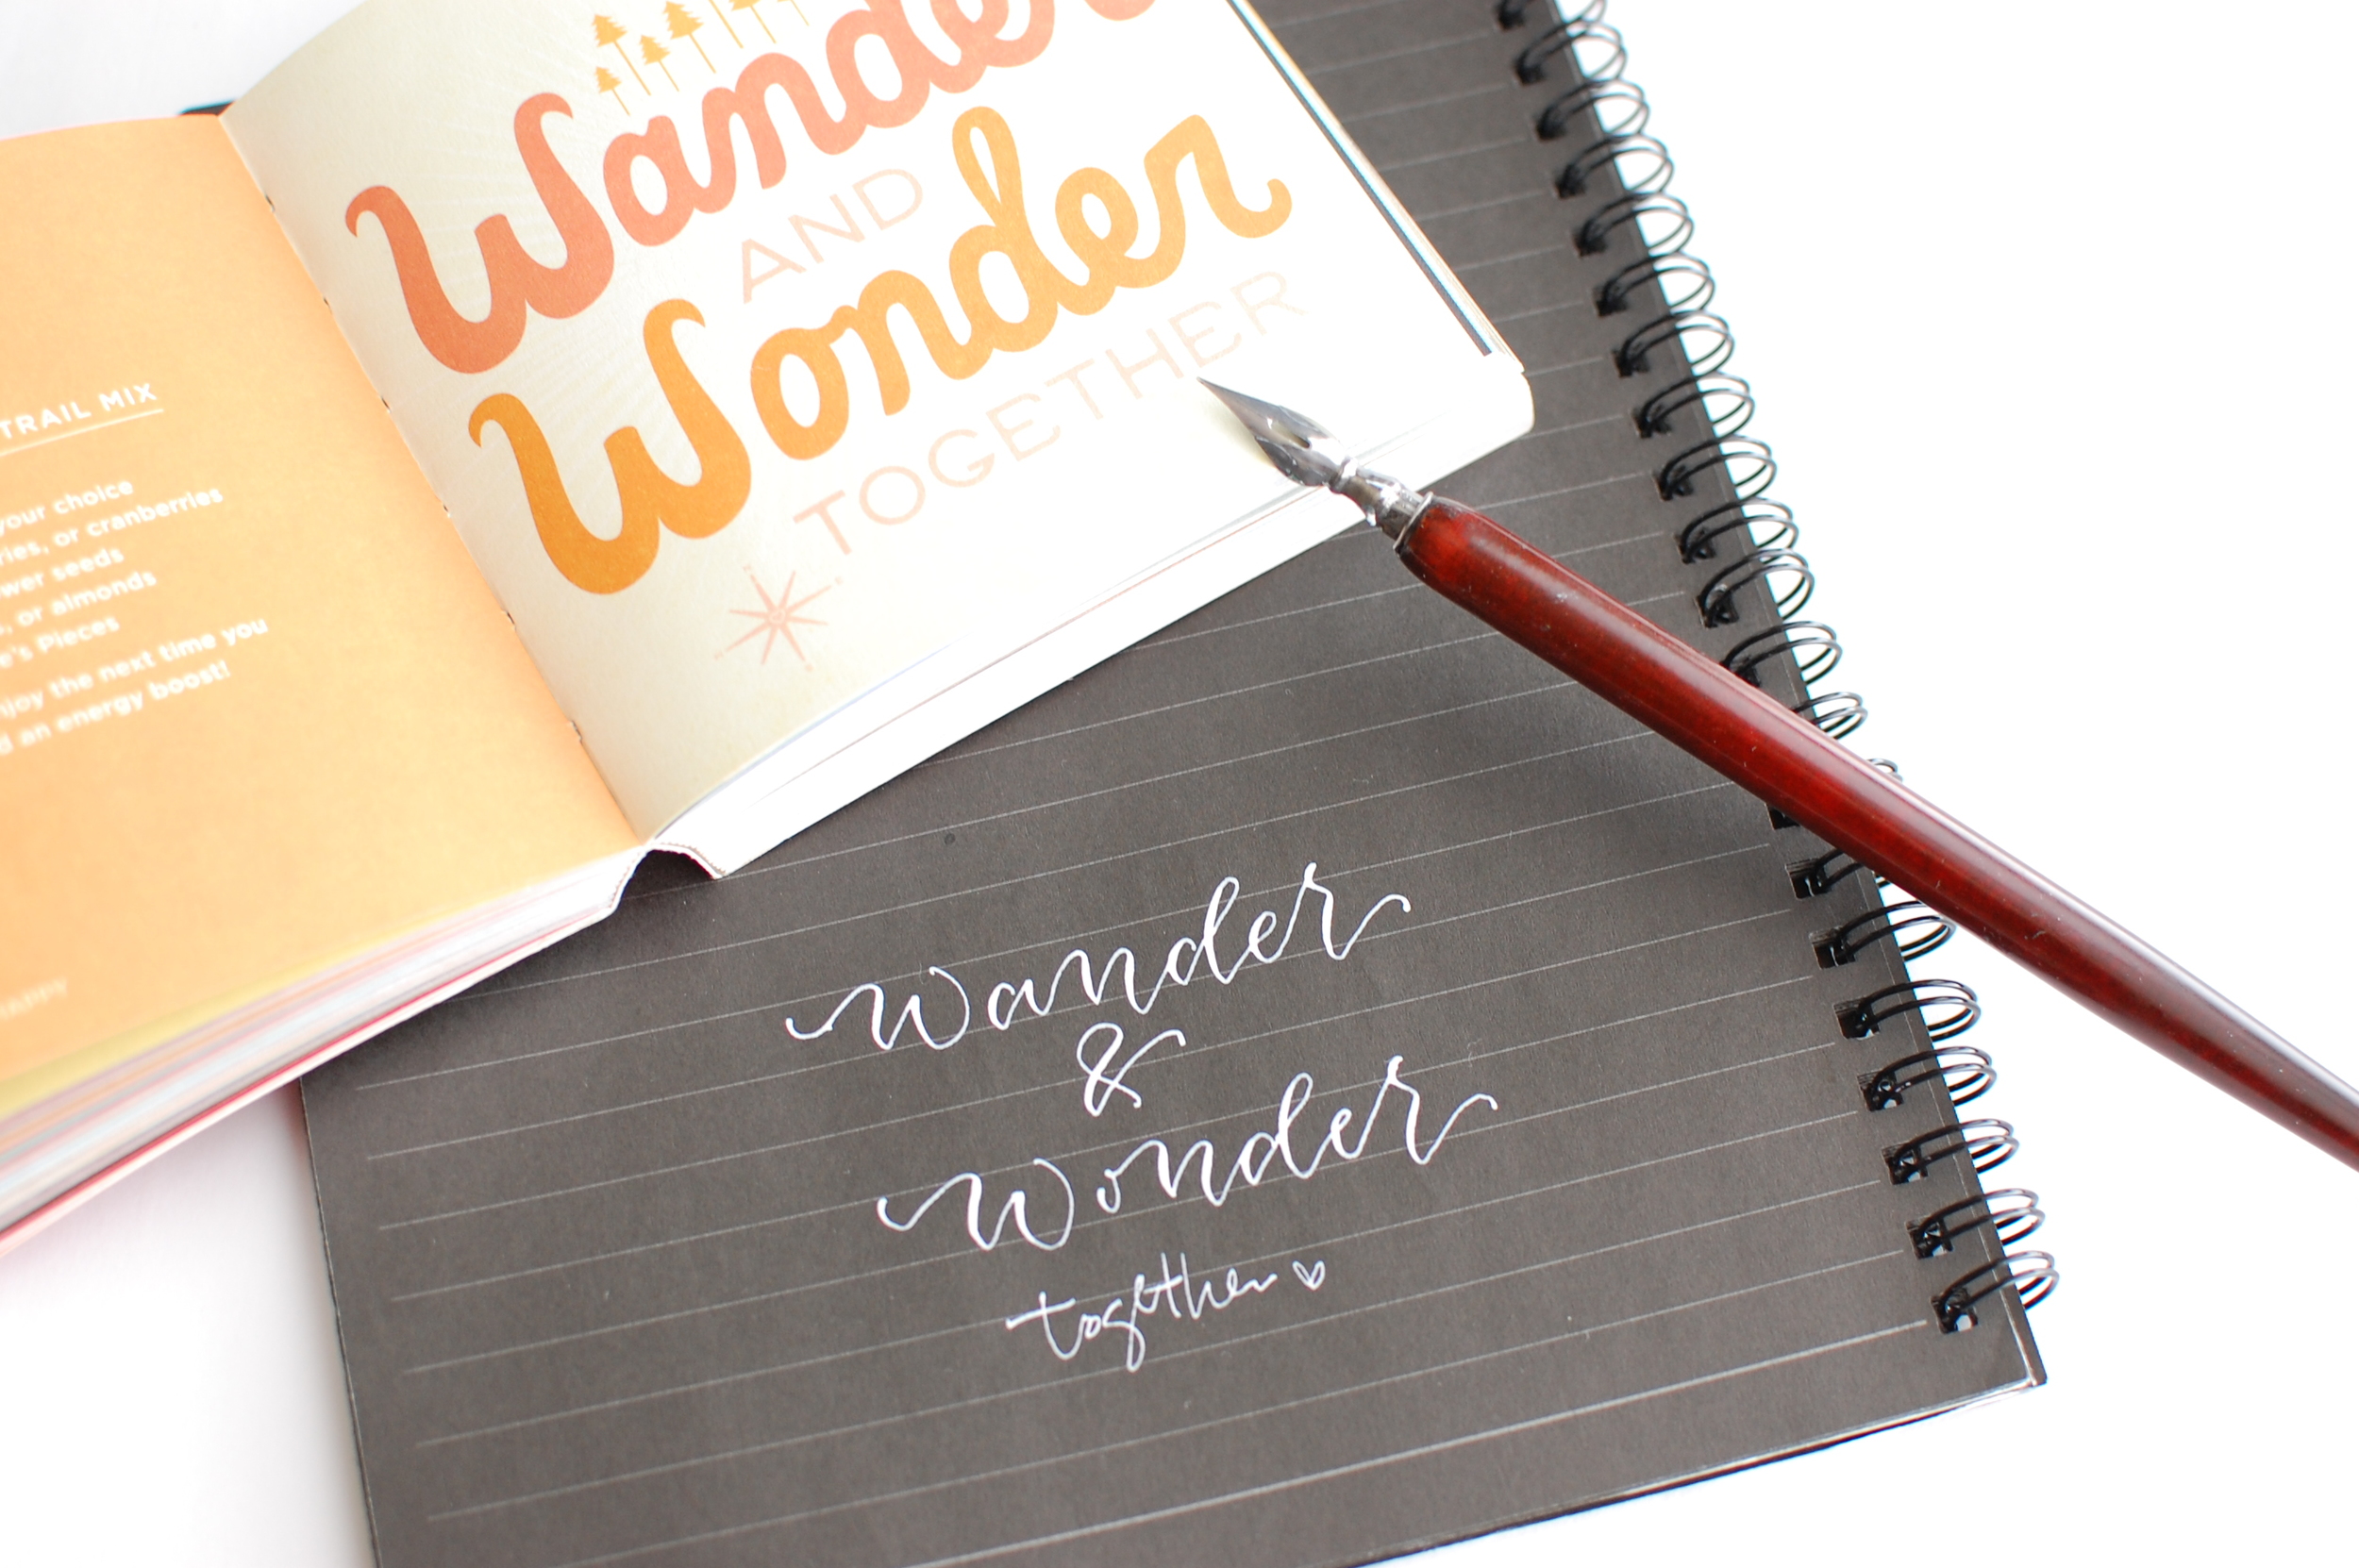 TRAIL MIX
your choice
or cranberries
seeds
or almonds
Pieces
the next time you
an energy boost!
HAPPY
Wander
AND
Wonder
TOGETHER
Wander
&
Wonder
together ♡